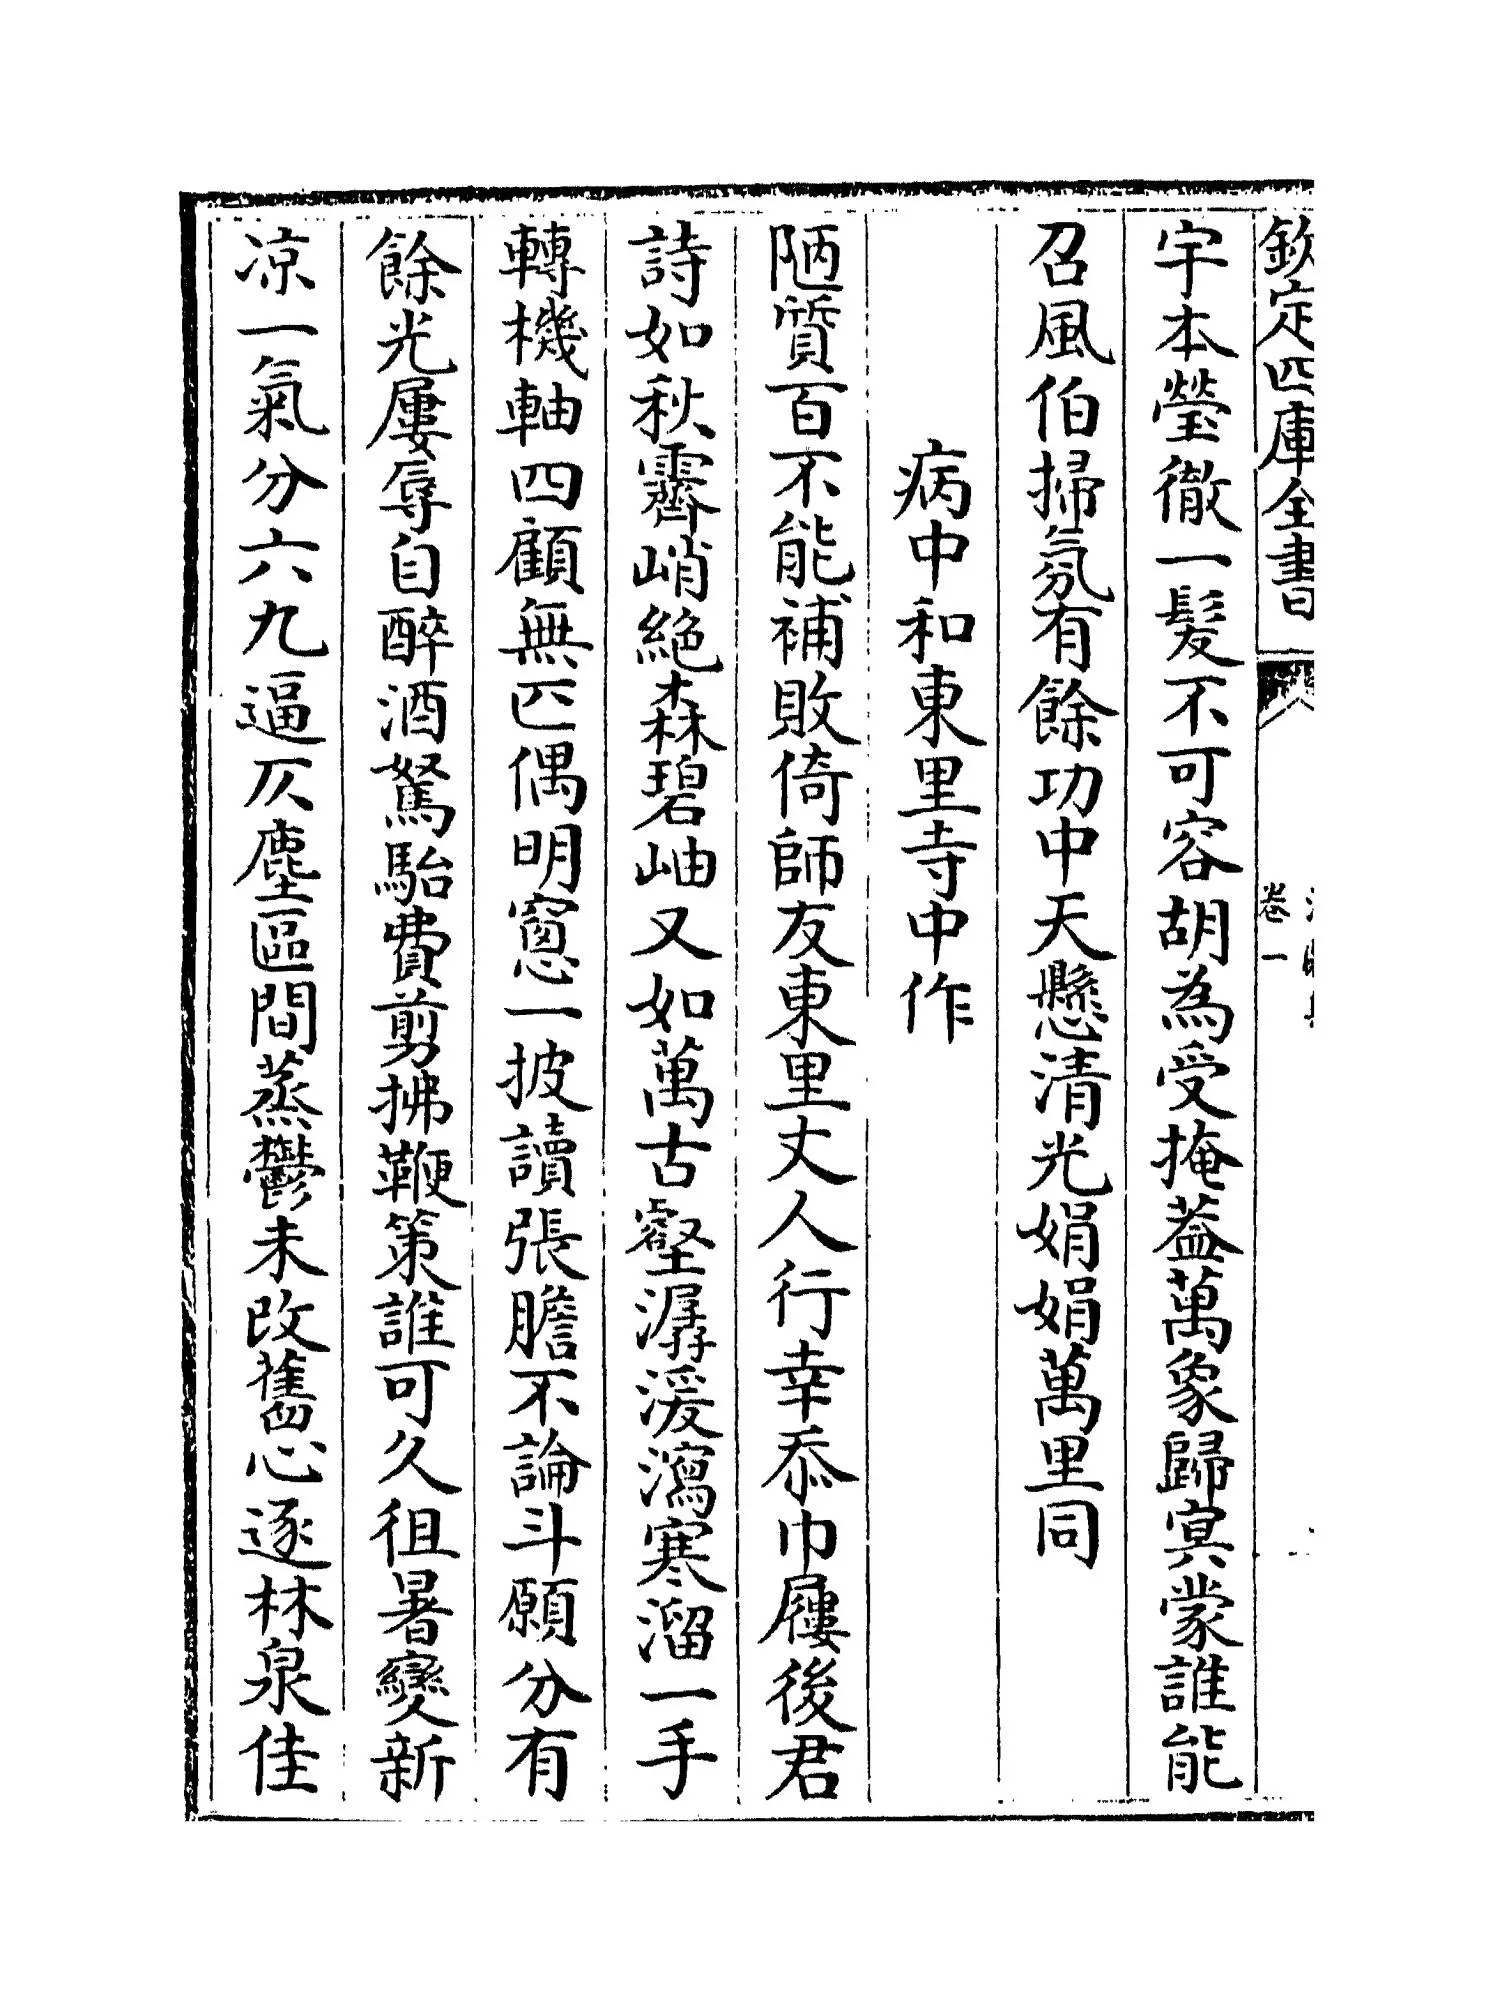 欽定四庫全書
卷一
宇本瑩徹一髮不可容胡為受掩葢萬象歸㝠蒙誰能
召風伯掃氛有餘功中天懸清光娟娟萬里同
病中和東里寺中作
陋質百不能補敗倚師友東里丈人行幸忝巾屨後君
詩如秋霽峭絶森碧岫又如萬古壑潺湲瀉寒溜一手
轉機軸四顧無匹偶明窻一披讀張膽不論斗願分有
餘光屢辱自醉酒駑駘費剪拂鞭策誰可久徂暑變新
凉一氣分六九逼仄塵區間蒸鬱未改舊心逐林泉佳